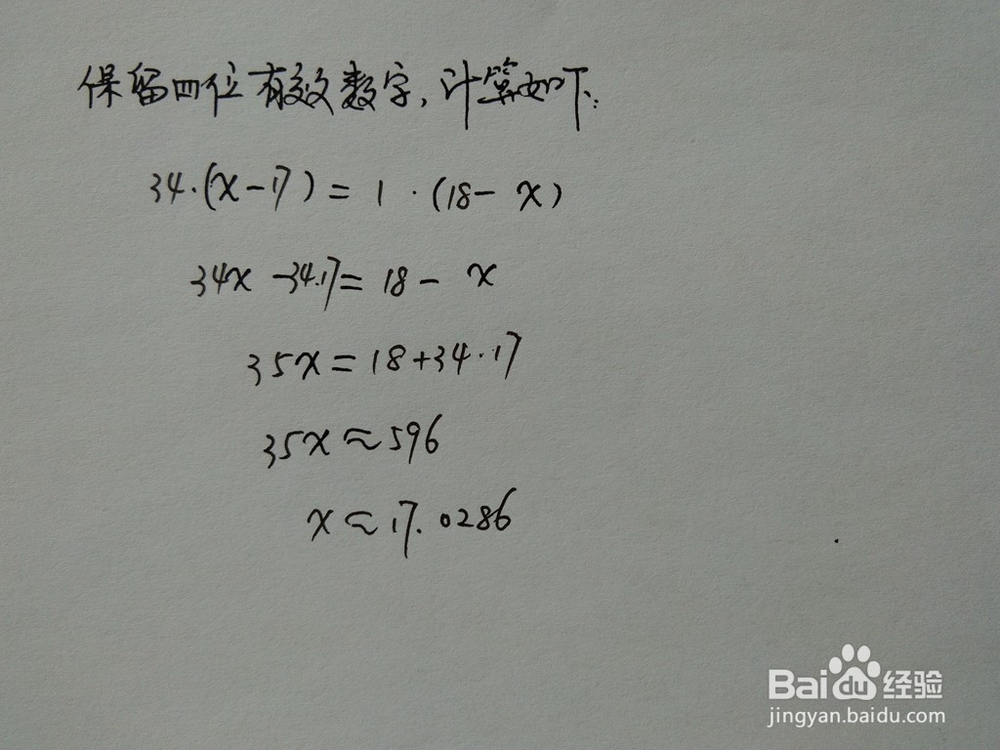 保留四位有效数字,计算如下:
34·(x-17)=1·(18-x)
34x-34·17=18-x
35x=18+34·17
35x≈596
x≈17.0286
Baidu经验
jingyan.baidu.com